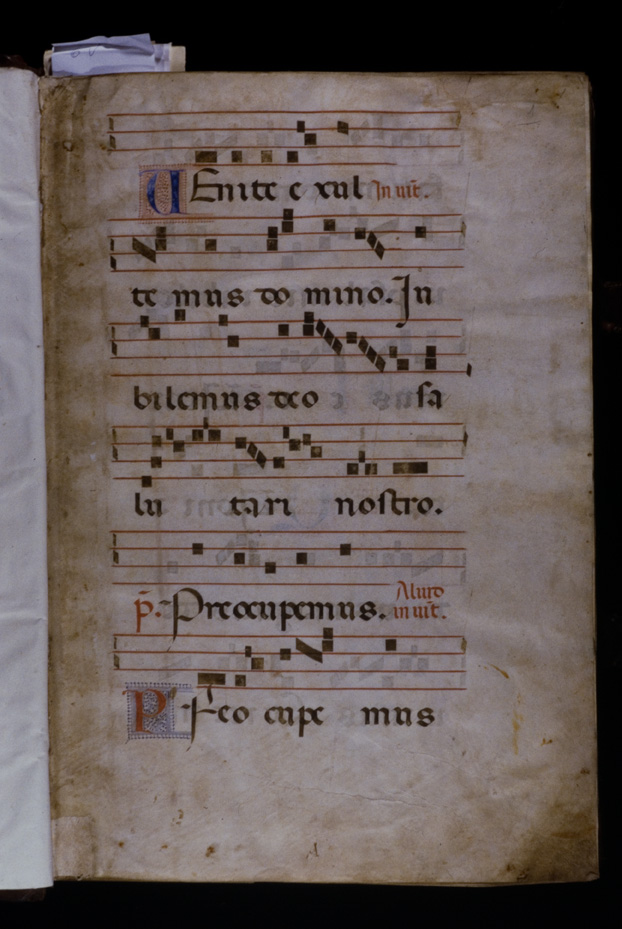 UEnite exul Inuit̄.
temus domino. Iu
bilemus deo sa
lu tari nostro.
p̄. Preocupemus. Aliud
inuit̄.
PReo cupe mus